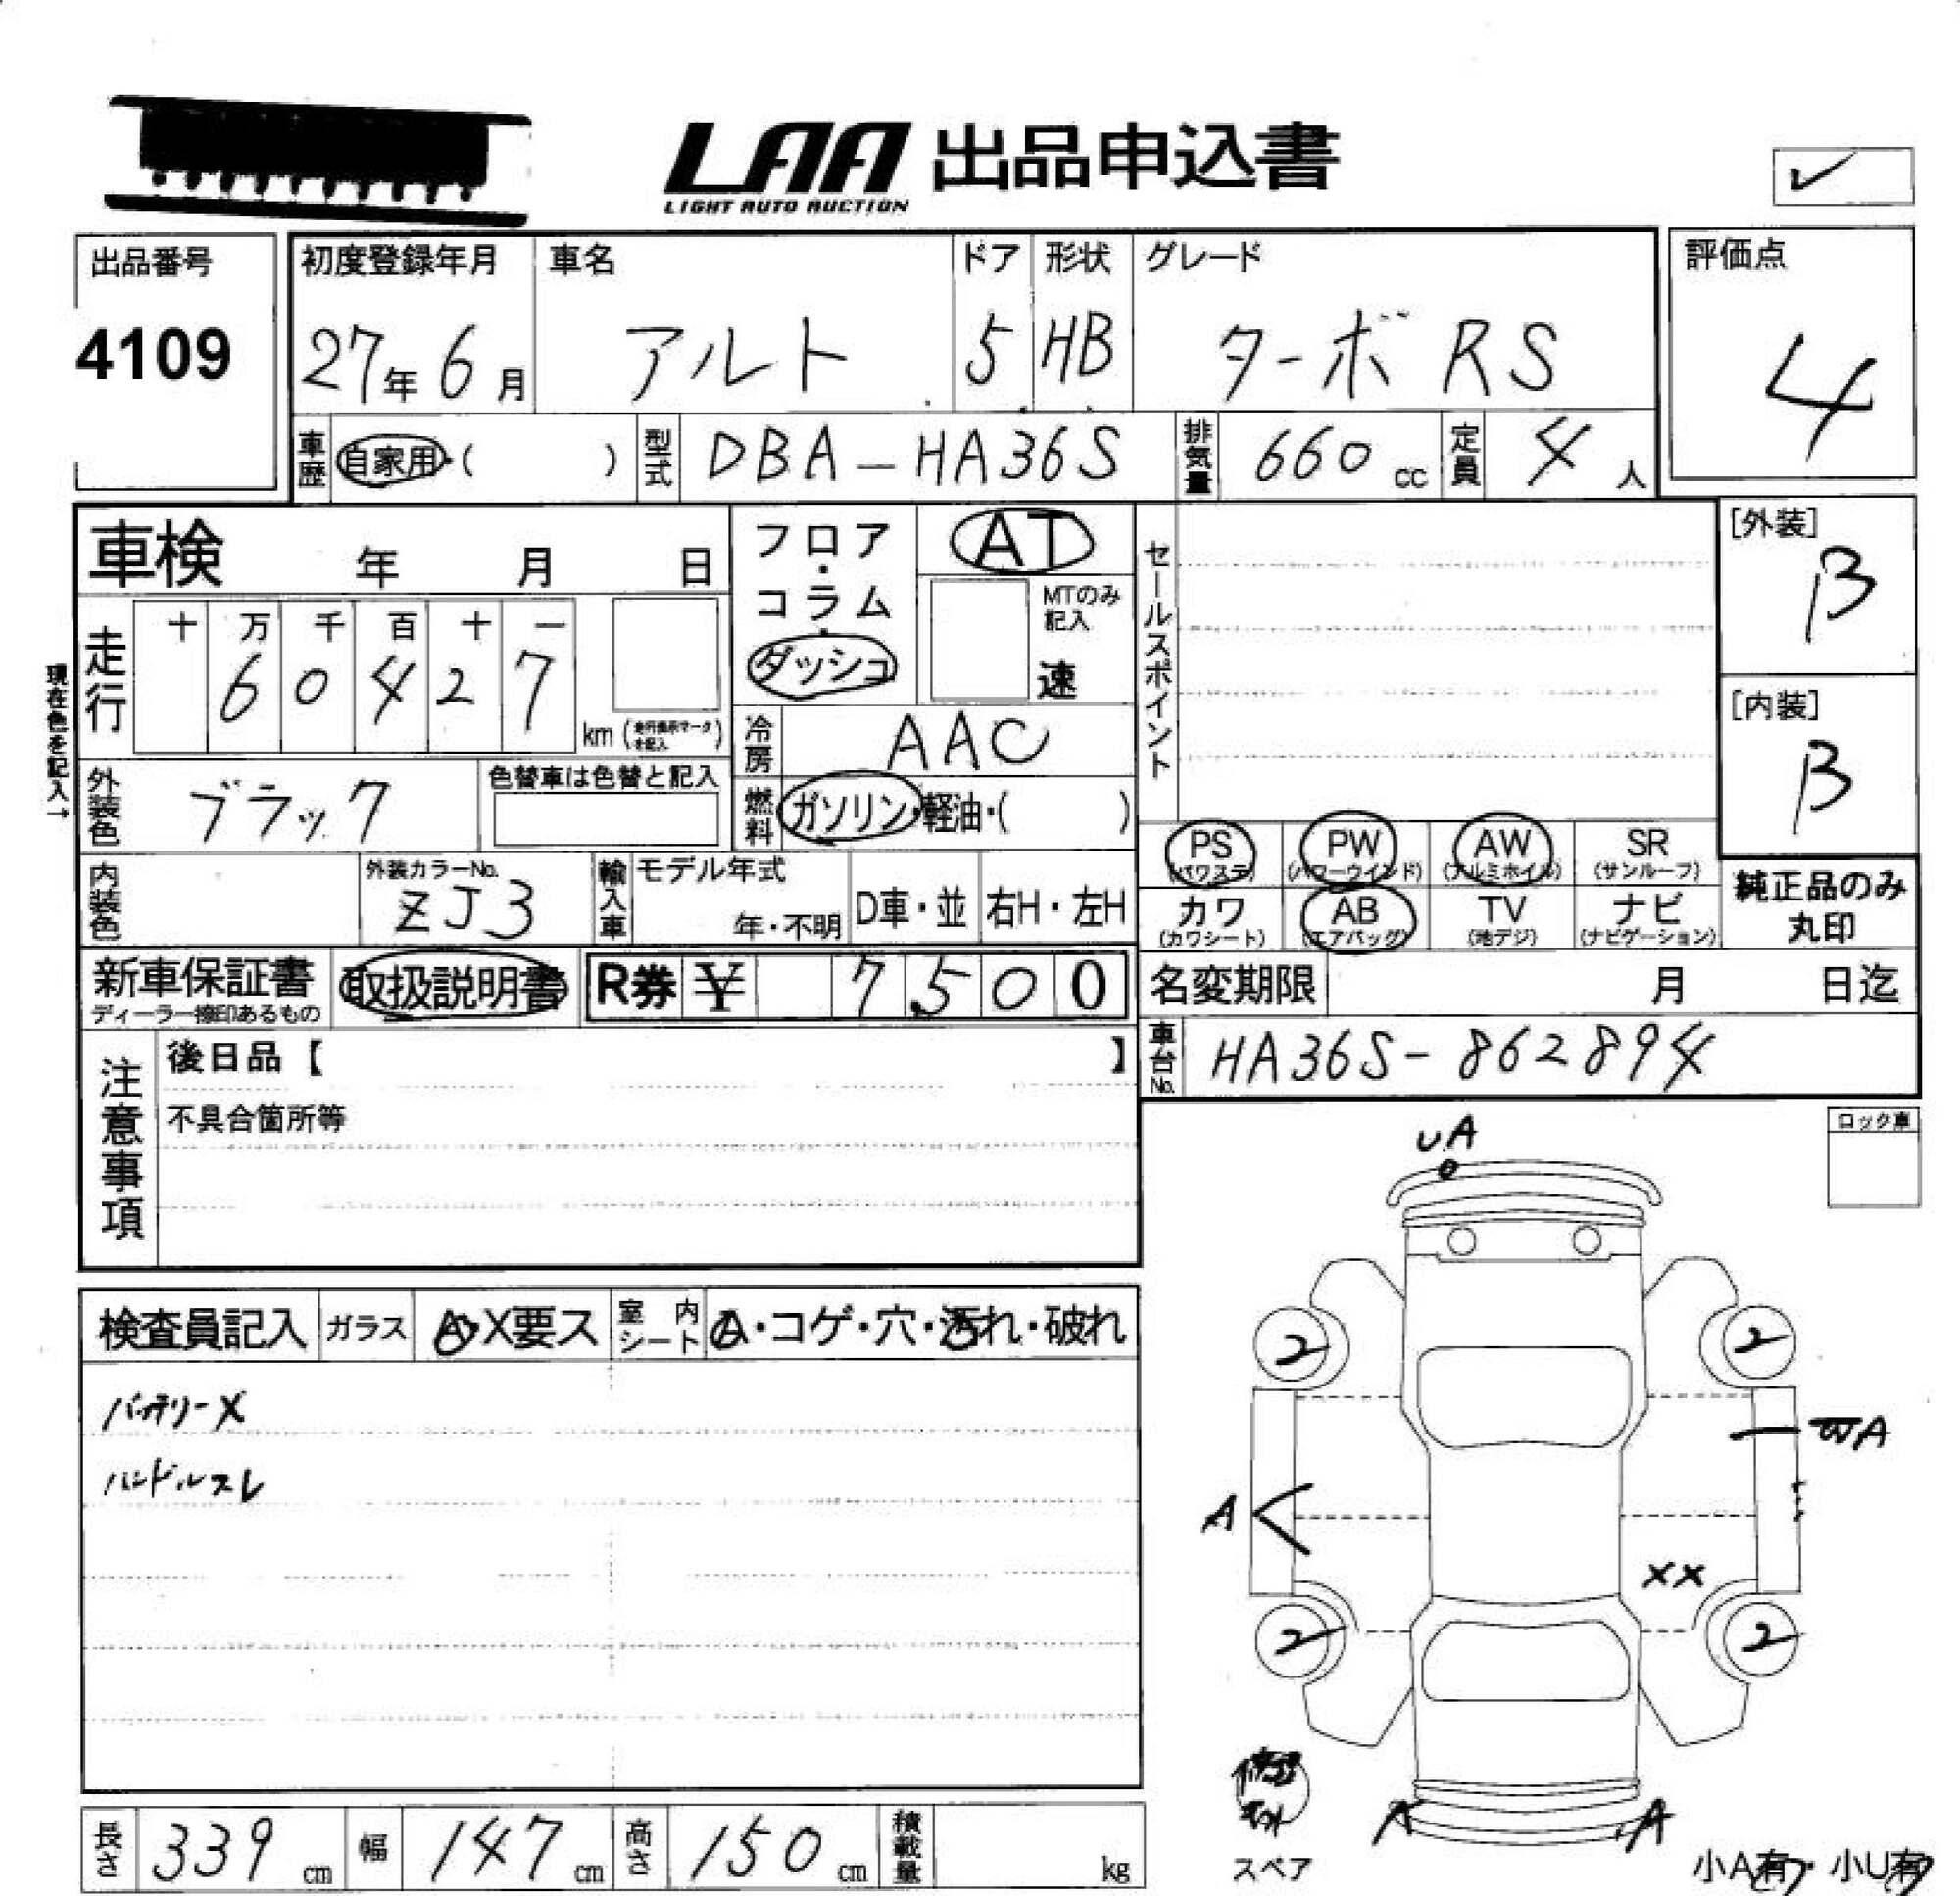 LAA 出品申込書
LIGHT AUTO AUCTION
出品番号 初度登録年月 車名 ドア 形状 グレード 評価点
4109 27年 6月 アルト 5 HB ターボ RS 4
車歴 自家用・( ) 型式 DBA-HA36S 排気量 660 cc 定員 4人
車検 年 月 日
フロア・コラム・ダッシュ
AT
MTのみ記入
速
セールスポイント
[外装]
B
[内装]
B
現在色を記入→
走行 十 万 千 百 十 一
6 0 4 2 7 km (走行指示マークを記入)
冷房 AAC
外装色 ブラック 色替車は色替と記入
燃料 ガソリン・軽油・( )
PS AW PW SR
(パワステ) (パワーウインド) (アルミホイル) (サンルーフ)
カワ AB TV ナビ
(カワシート) (エアバッグ) (地デジ) (ナビゲーション)
純正品のみ
丸印
内装色 外装カラーNo. ZJ3 輸入車 モデル年式 年・不明 D車・並 右H・左H
新車保証書 取扱説明書 R券 ¥ 7500
ディーラー捺印あるもの
名変期限 月 日迄
車台No. HA36S-862894
注意事項
後日品【 】
不具合箇所等
ロック車
UA
検査員記入 ガラス A・X要ス 室内シート A・コゲ・穴・汚れ・破れ
バッテリーX
ハンドルスレ
2 2
WA
A
XX
2 2
A A
スペア
小A有・小U有
長さ 339 cm 幅 147 cm 高さ 150 cm 積載量 kg